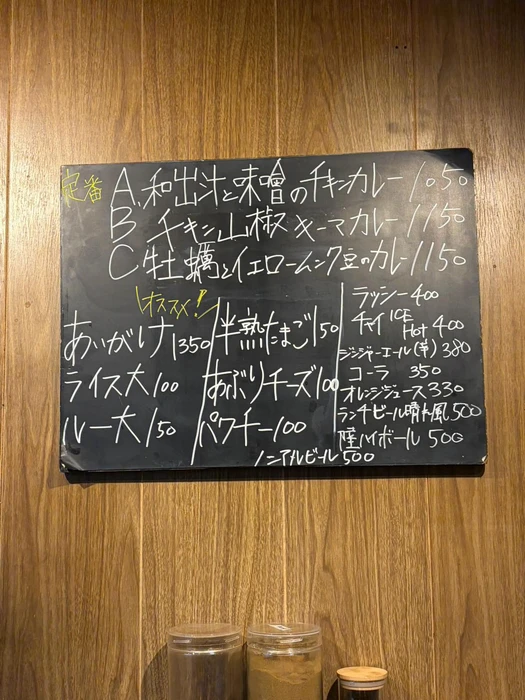 定番 A. 和出汁と味噌のチキンカレー 1050
B チキン山椒キーマカレー 1150
C 牡蠣とイエロームング豆のカレー 1150
オススメ!
あいがけ 1350
ライス大 100
ルー大 150
半熟たまご 150
あぶりチーズ 100
パクチー 100
ノンアルビール 500
ラッシー 400
チャイ ICE Hot 400
ジンジャーエール(辛) 380
コーラ 350
オレンジジュース 330
ランチビール晴れ風 500
陸ハイボール 500